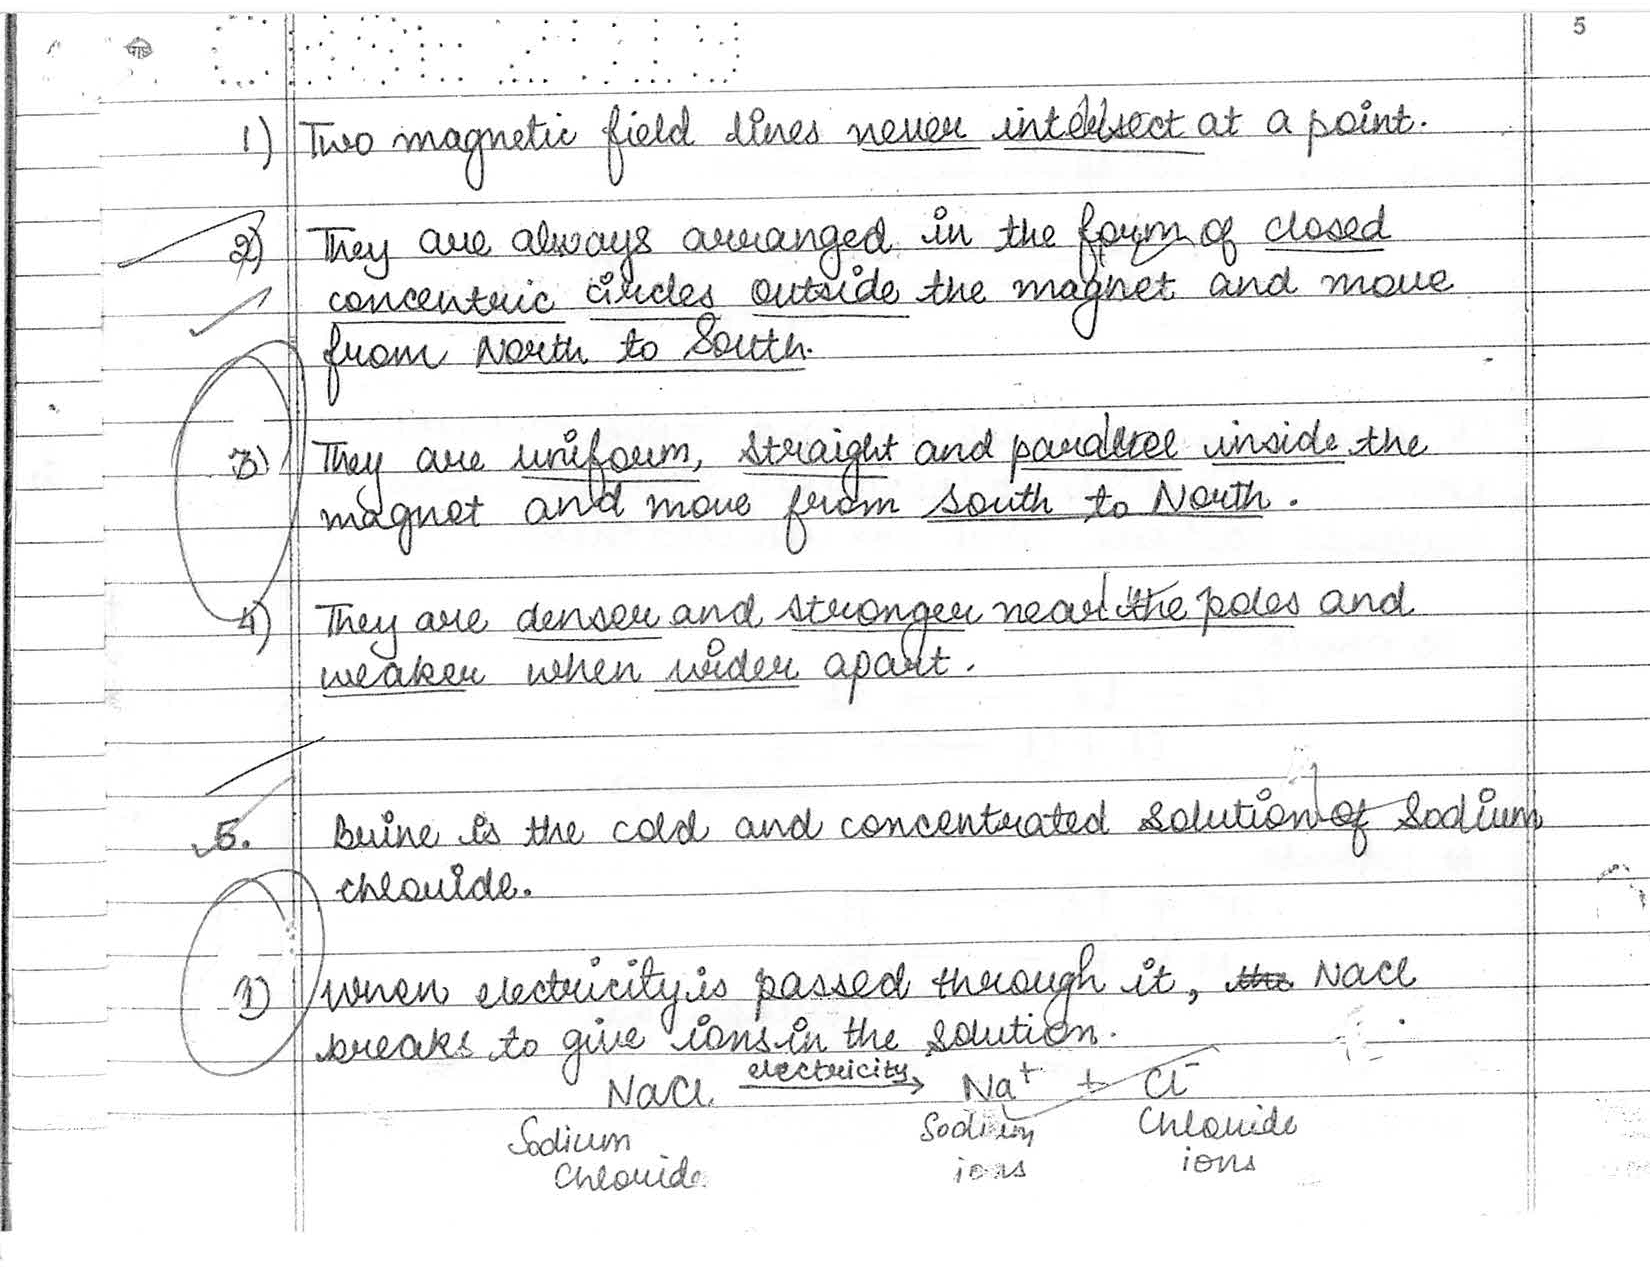 5
1) Two magnetic field lines never intersect at a point.
2) They are always arranged in the form of closed
concentric circles outside the magnet and move
from North to South.
3) They are uniform, straight and parallel inside the
magnet and move from South to North.
4) They are denser and stronger near the poles and
weaker when wider apart.
5. Brine is the cold and concentrated solution of Sodium
chloride.
1) When electricity is passed through it, the NaCl
breaks to give ions in the solution.
NaCl electricity → Na⁺ + Cl⁻
Sodium Sodium Chloride
Chloride ions ions